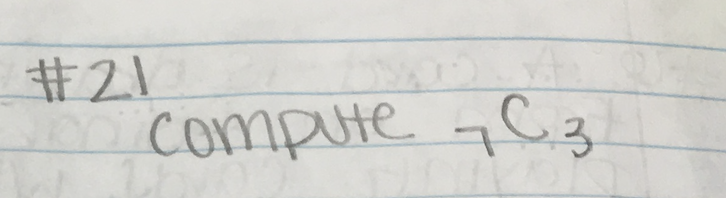 #21
compute ₇C₃